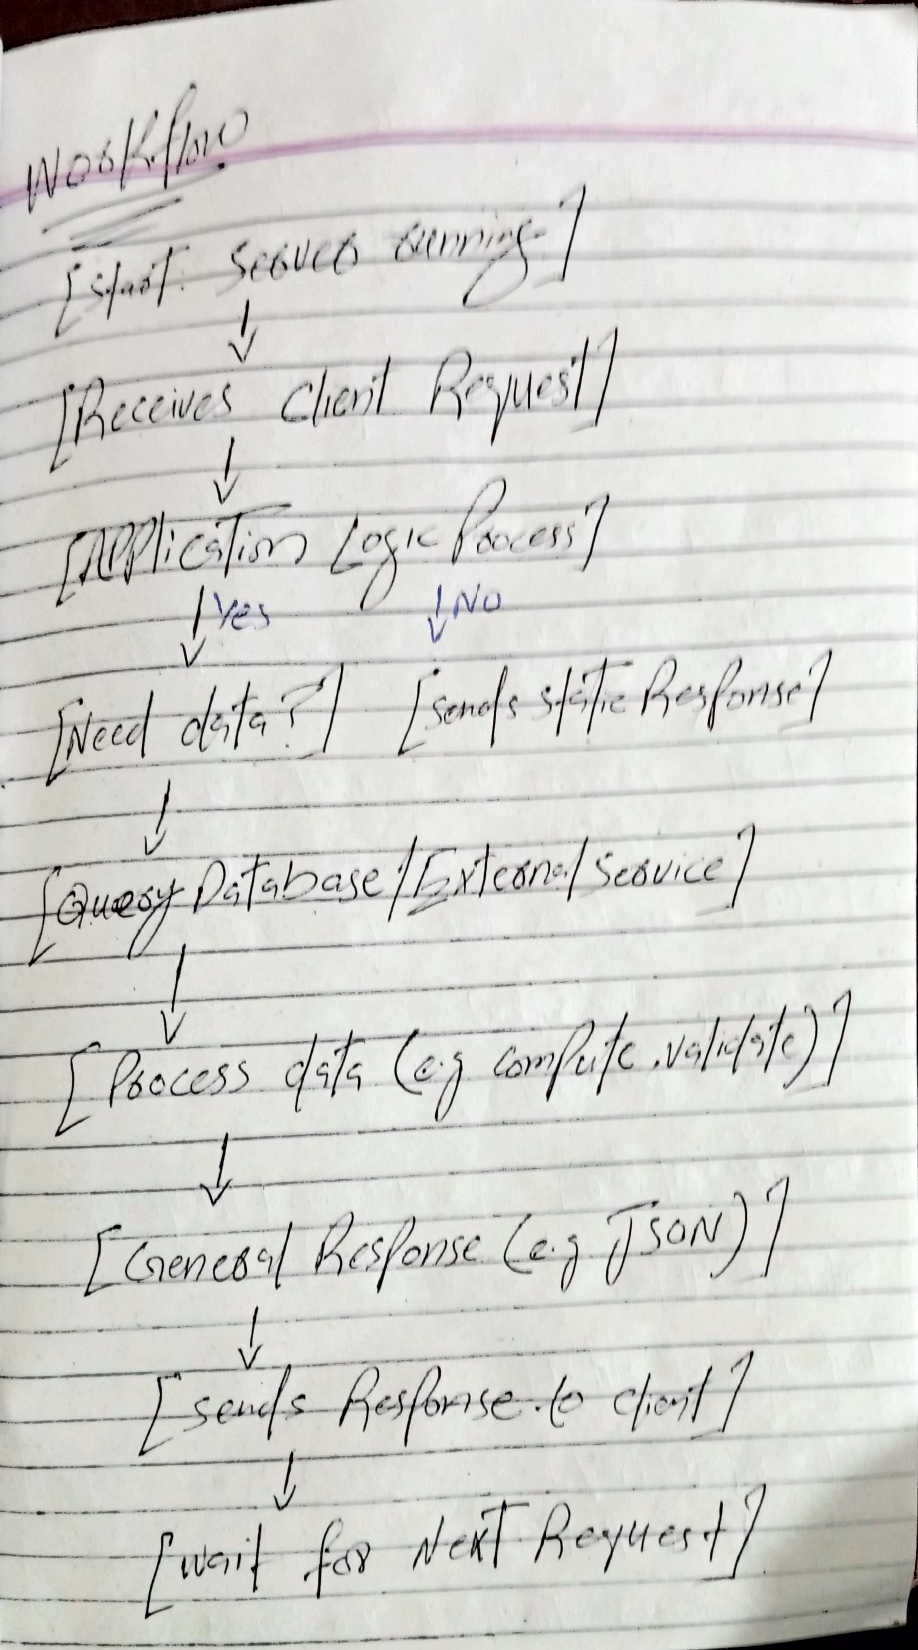 Workflow
[Start: Server running]
[Receives Client Request]
[Application Logic Process]
Yes No
[Need data?] [sends static Response]
[Query Database/External Service]
[Process data (e.g compute, validate)]
[General Response (e.g JSON)]
[sends Response to client]
[wait for Next Request]